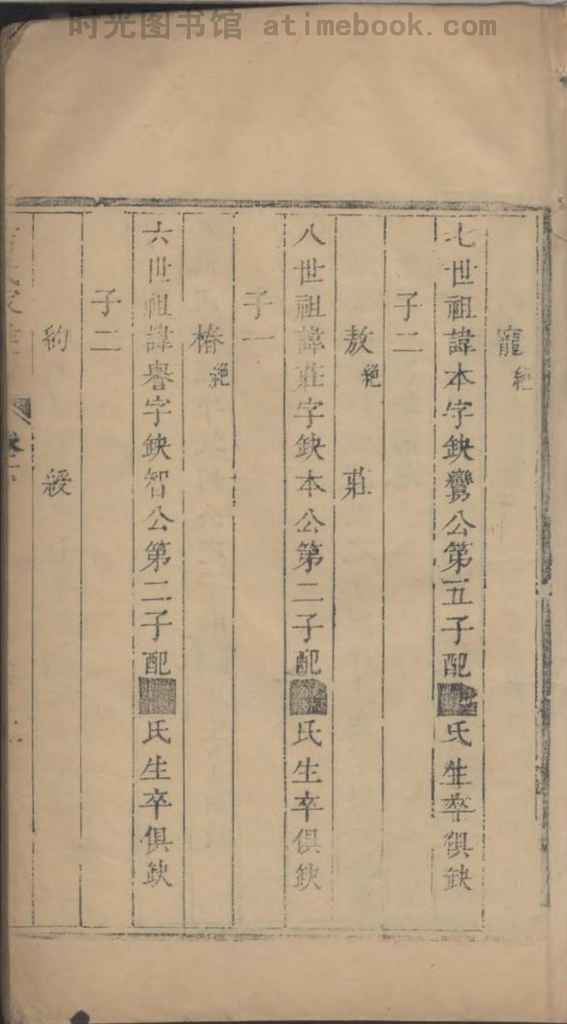 时光图书馆 atimebook.com
寵 絕
七世祖諱本字缺 公第五子配 氏生卒俱缺
子二
敖 絕 莊
八世祖諱莊字缺本公第二子配 氏生卒俱缺
子一
椿 絕
六世祖諱譽字缺智公第二子配 氏生卒俱缺
子二
約 綬